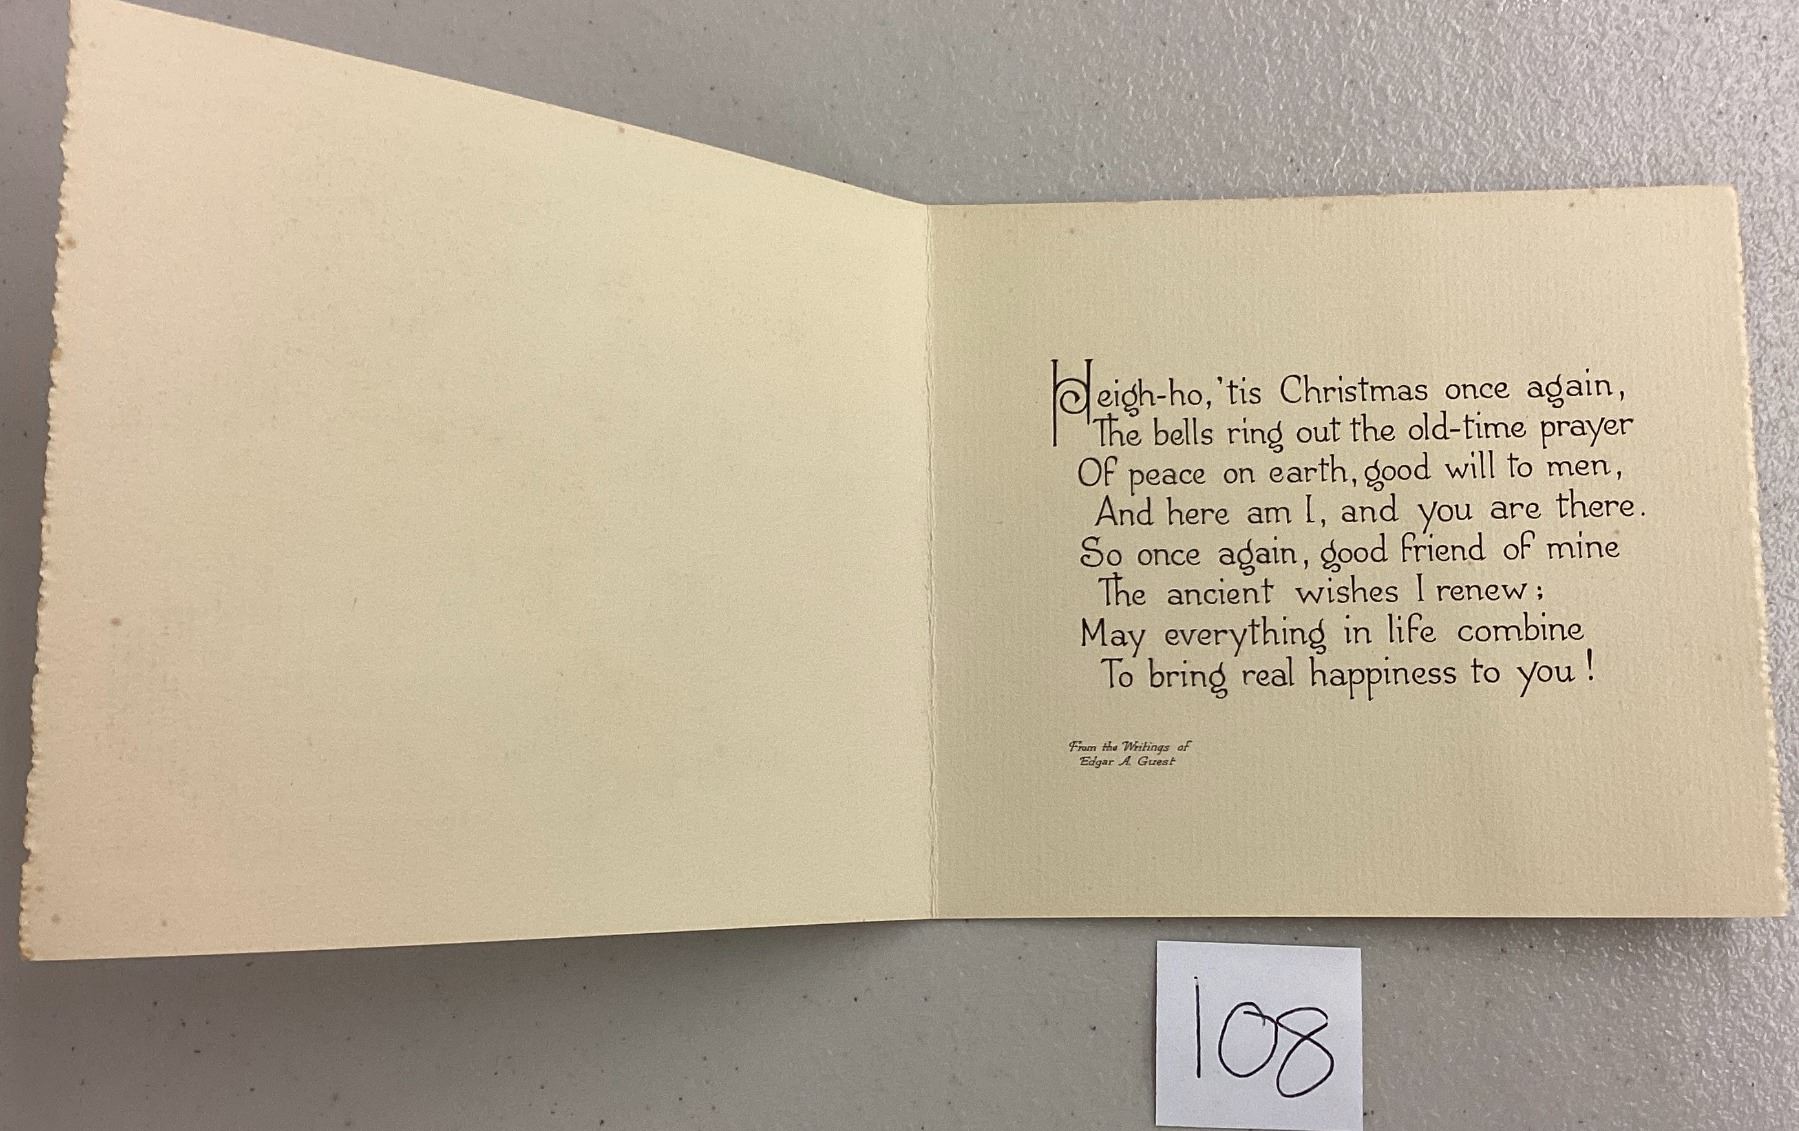 Heigh-ho, 'tis Christmas once again,
The bells ring out the old-time prayer
Of peace on earth, good will to men,
And here am I, and you are there.
So once again, good friend of mine
The ancient wishes I renew;
May everything in life combine
To bring real happiness to you!
From the Writings of
Edgar A. Guest
108